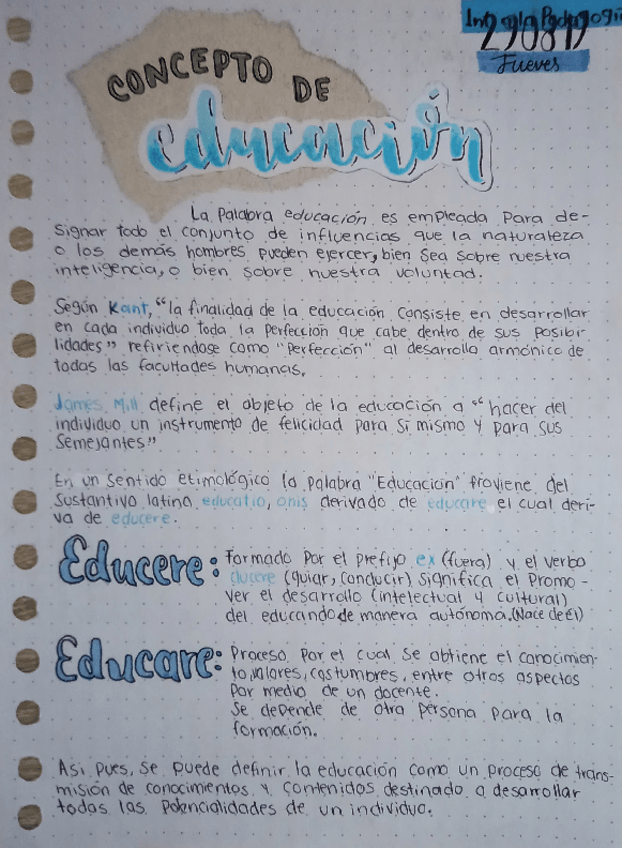 Int a la Pedagogía
290819
Jueves
CONCEPTO DE
educación
La palabra educación es empleada para de-
signar todo el conjunto de influencias que la naturaleza
o los demás hombres pueden ejercer, bien sea sobre nuestra
inteligencia, o bien sobre nuestra voluntad.
Según Kant, "la finalidad de la educación consiste en desarrollar
en cada individuo toda la perfección que cabe dentro de sus posibi-
lidades" refiriendose como "perfección" al desarrollo armónico de
todas las facultades humanas.
James Mill define el objeto de la educación a "hacer del
individuo un instrumento de felicidad para sí mismo y para sus
semejantes".
En un sentido etimológico la palabra "Educación" proviene del
sustantivo latino educatio, onis derivado de educare el cual deri-
va de educere.
Educere: Formado por el prefijo ex (fuera) y el verbo
ducere (guiar, conducir) significa el promo-
ver el desarrollo (intelectual y cultural)
del educando de manera autónoma. (Nace de él)
Educare: Proceso por el cual se obtiene el conocimien-
to, valores, costumbres, entre otros aspectos
por medio de un docente.
Se depende de otra persona para la
formación.
Asi pues, se puede definir la educación como un proceso de trans-
misión de conocimientos y contenidos destinado a desarrollar
todas las potencialidades de un individuo.